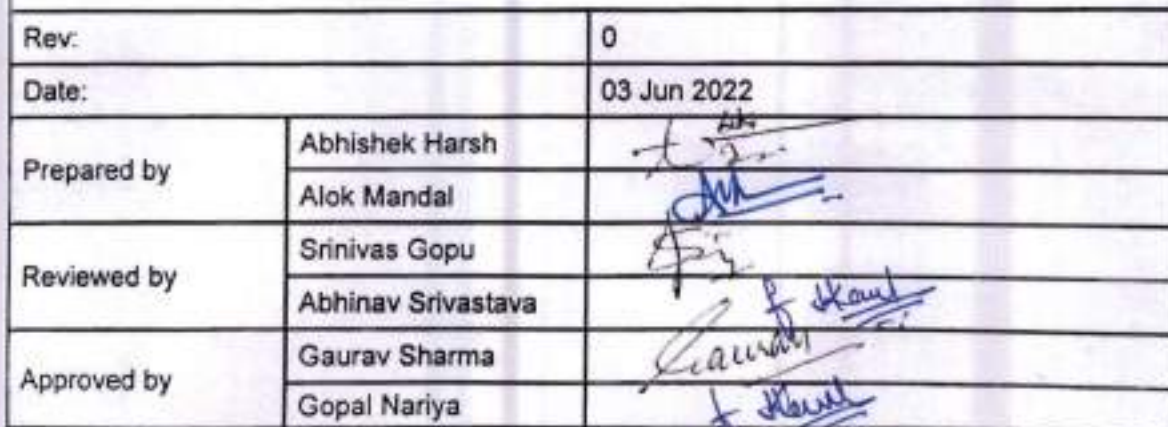 Rev: 0
Date: 03 Jun 2022
Prepared by
Abhishek Harsh
Alok Mandal
Reviewed by
Srinivas Gopu
Abhinav Srivastava
Approved by
Gaurav Sharma
Gaurav
Gopal Nariya